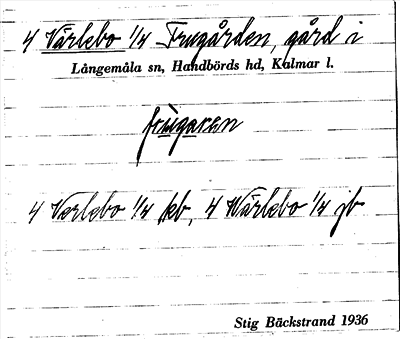 4 Värlebo 1/4 Frugården, gård i
Långemåla sn, Handbörds hd, Kalmar l.
frùgaran
4 Verlebo 1/4 kb, 4 Wärlebo 1/4 jb
Stig Bäckstrand 1936